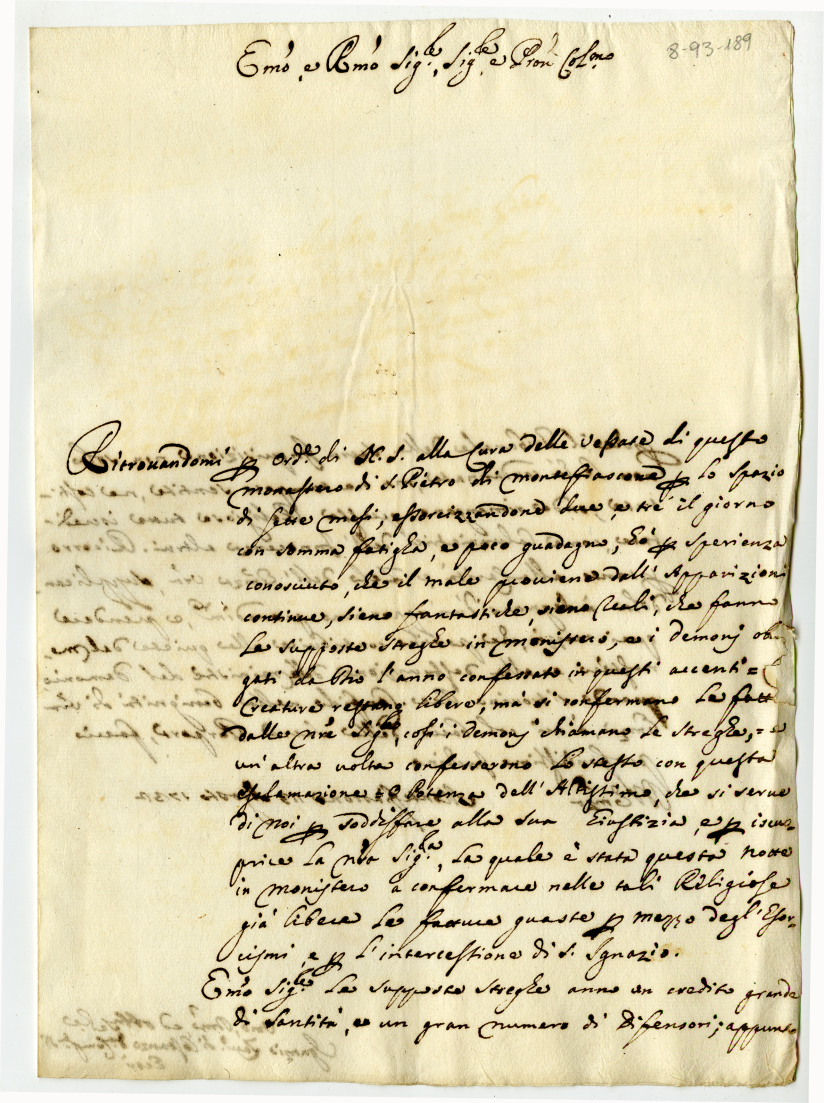 8-93-189
Emo, e Rmo Sig.re, Sig.re e Pron Col.mo
Ritrouandomi p ord.e di N. S. alla Cura delle vessate di questo
monastero di S. Pietro di monteffiascone p lo spazio
di sette mesi, essorcizzandone due, e trè il giorno
con somma fatigha, e poco guadagno, hò p sperienza
conosciuto, che il male proviene dall'Apparizioni
continue, sieno fantastiche, sieno Reali, che fanno
le supposte streghe in monistero, e i demonj
gati da Dio l'anno confessato in questi accenti =
Creature restano libere, mà si confermano le
dalle nre Sig.re, così i demonj chiamano le streghe, =
un'altra volta confessarono lo stesso con questa
esclamazione = O Potenza dell'Altissimo, che si serve
di noi p soddisfare alla sua Giustizia, e p
price la nra Sig.ra, la quale è stata questa notte
in monistero a confermare nelle tali Religiose
già libere le fatture guaste p mezzo degl'Esor-
cismi, e p l'intercessione di S. Ignazio.
Emo Sig.re le supposte streghe anno un credito grande
di Santità, e un gran numero di Difensori; appunto